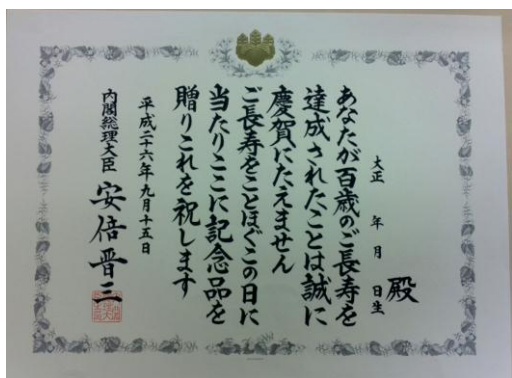 殿
大正 年 月 日生
あなたが百歳のご長寿を
達成されたことは誠に
慶賀にたえません
ご長寿をことほぐこの日に
当たりここに記念品を
贈りこれを祝します
平成二十六年九月十五日
内閣総理大臣 安倍晋三